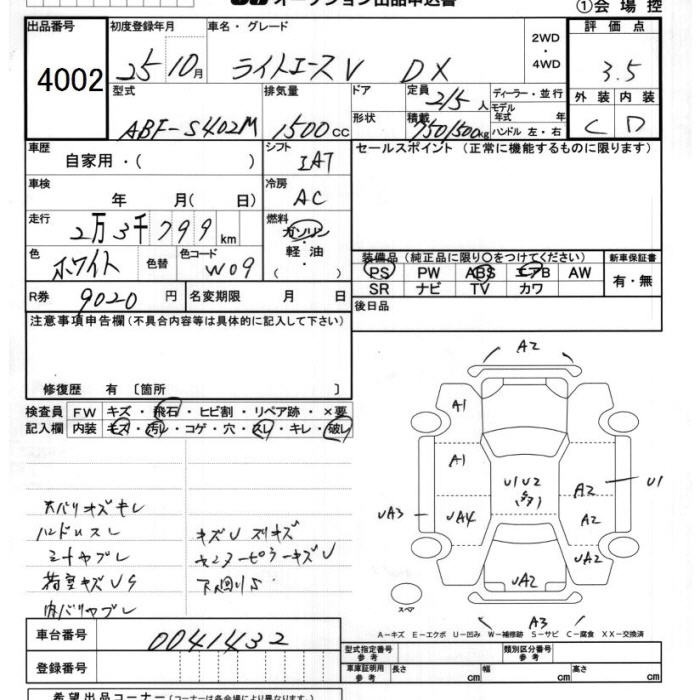 オークション出品申込書
①会場控
出品番号 初度登録年月 車名・グレード 2WD・4WD 評価点
4002 25 10月 ライトエースV DX 3.5
型式 排気量 ドア 定員 2/5人 ディーラー・並行 外装 内装
ABF-S402M 1500cc 形状 積載 750/500kg モデル年式 年 ハンドル 左・右 C D
車歴 シフト セールスポイント (正常に機能するものに限ります)
自家用・( ) IAT
車検 冷房
年 月( 日) AC
走行 燃料
2万3千799km ガソリン・軽油・( )
色 色替 色コード
ホワイト W09
装備品 (純正品に限り○をつけてください) 新車保証書
PS PW ABS エアB AW 有・無
SR ナビ TV カワ
R券 9020円 名変期限 月 日 後日品
注意事項申告欄 (不具合内容等は具体的に記入して下さい)
修復歴 有 〔箇所 〕
検査員 FW キズ・飛石・ヒビ割・リペア跡・×要
記入欄 内装 キズ・汚レ・コゲ・穴・スレ・キレ・破レ
ハンドルスレ
シートヤブレ
キズU
A2
A1
A1
U1U2
A2
U1
UA3
UA4
A2
UA2
UA2
スペア
A3
A-キズ E-エクボ U-凹み W-補修跡 S-サビ C-腐食 XX-交換済
車台番号 0041432
登録番号
型式指定番号 類別区分番号
車庫証明用参考 長さ cm 幅 cm 高さ cm
希望出品コーナー (コーナーは各会場により異なります。)